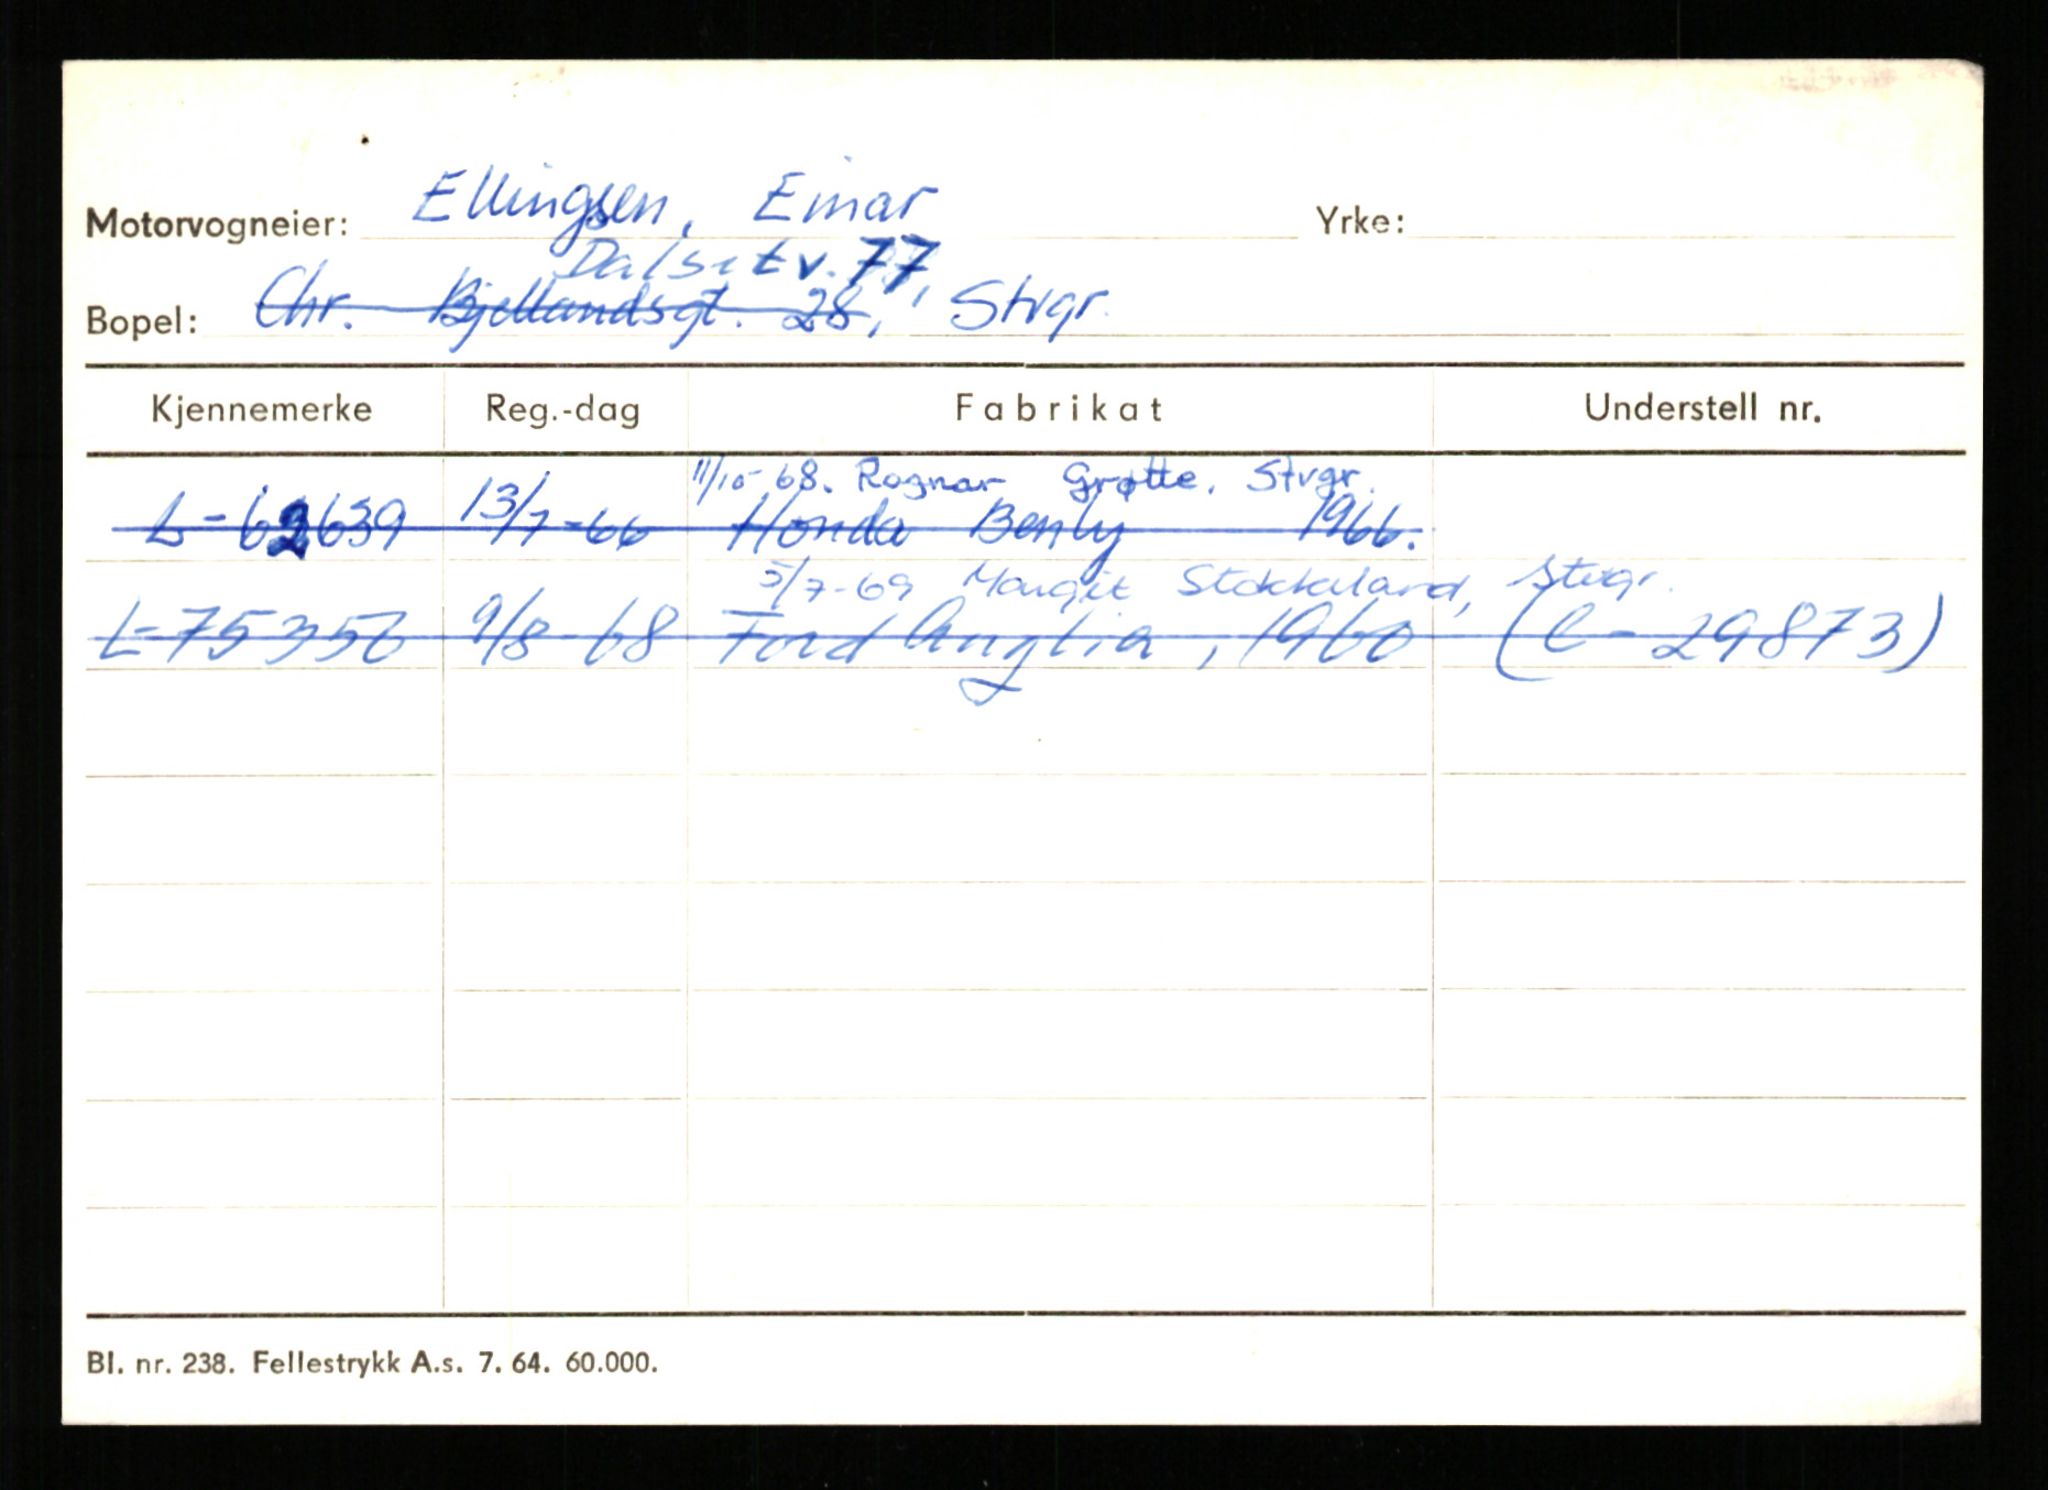 Motorvogneier: Ellingsen, Einar Yrke:
Dalsetv. 77,
Bopel: Chr. Bjellandsgt. 28, Stvgr.
Kjennemerke Reg.-dag Fabrikat Understell nr.
11/10-68. Ragnar Grøtte, Stvgr.
L-62639 13/7-66 Honda Benly 1966.
5/7-69 Margit Stokkeland, Stvgr.
L-75356 9/8-68 Ford Anglia, 1960 (C-29873)
Bl. nr. 238. Fellestrykk A.s. 7. 64. 60.000.